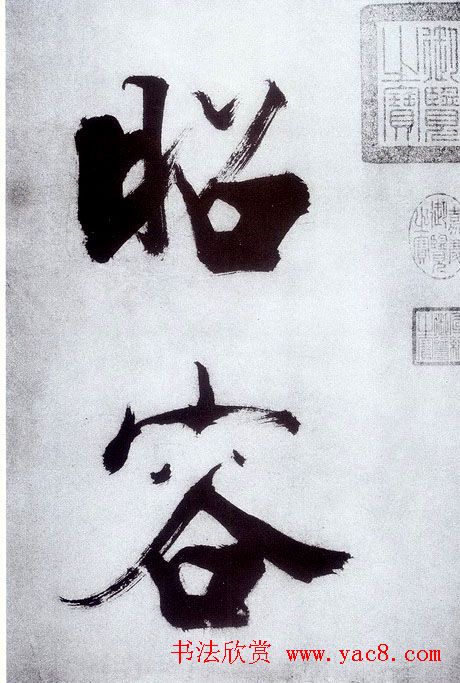 御覽
之寶
嘉慶
御覽
之寶
昭容
书法欣赏 www.yac8.com